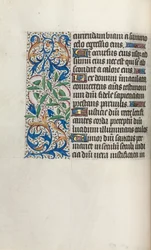 currendam viam a summo
celo egressio eius
Et occursus eius usque ad sum
mum eius nec est qui se ab
scondat a calore eius
Lex domini immaculata
convertens animas testimo
nium dñi fidele sapientiam
prestans parvulis
Iusticie dñi recte letifi
cantes corda preceptum dñi
lucidum illuminans oculos
Timor dñi sanctus per
manet in seculum seculi iudi
cia dñi vera iustificata in